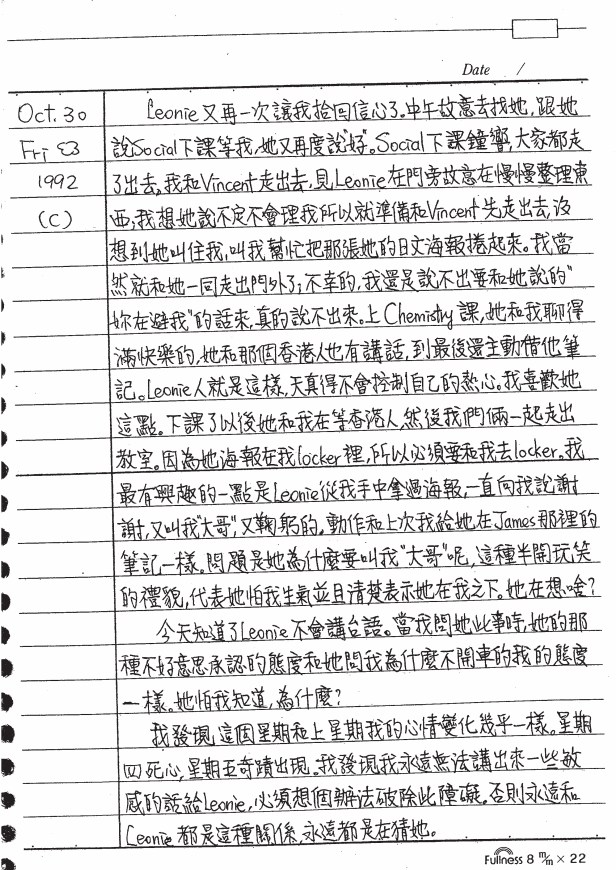 Date /
Oct. 30 Leonie又再一次讓我拾回信心了。中午故意去找她,跟她
Fri 說Social下課等我,她又再度說"好"。Social下課鐘響,大家都走
1992 了出去,我和Vincent走出去,見Leonie在門旁故意在慢慢整理東
(C) 西;我想她說不定不會理我所以就準備和Vincent先走出去,沒
想到她叫住我,叫我幫忙把那張她的日文海報捲起來。我當
然就和她一同走出門外了;不幸的,我還是說不出要和她說的"
妳在避我"的話來,真的說不出來。上Chemistry課,她和我聊得
滿快樂的,她和那個香港人也有講話,到最後還主動借他筆
記。Leonie人就是這樣,天真得不會控制自己的熱心。我喜歡她
這點。下課了以後她和我在等香港人,然後我們倆一起走出
教室。因為她海報在我locker裡,所以必須要和我去locker。我
最有興趣的一點是Leonie從我手中拿過海報,一直向我說謝
謝,又叫我"大哥",又鞠躬的。動作和上次我給她在James那裡的
筆記一樣。問題是她為什麼要叫我"大哥"呢,這種半開玩笑
的禮貌,代表她怕我生氣並且清楚表示她在我之下。她在想啥?
今天知道了Leonie不會講台語。當我問她此事時,她的那
種不好意思承認的態度和她問我為什麼不開車的我的態度
一樣。她怕我知道,為什麼?
我發現,這個星期和上星期我的心情變化幾乎一樣。星期
四死心,星期五奇蹟出現。我發現我永遠無法講出來一些敏
感的話給Leonie,必須想個辦法破除此障礙。否則永遠和
Leonie都是這種關係,永遠都是在猜她。
Fullness 8 m/m × 22